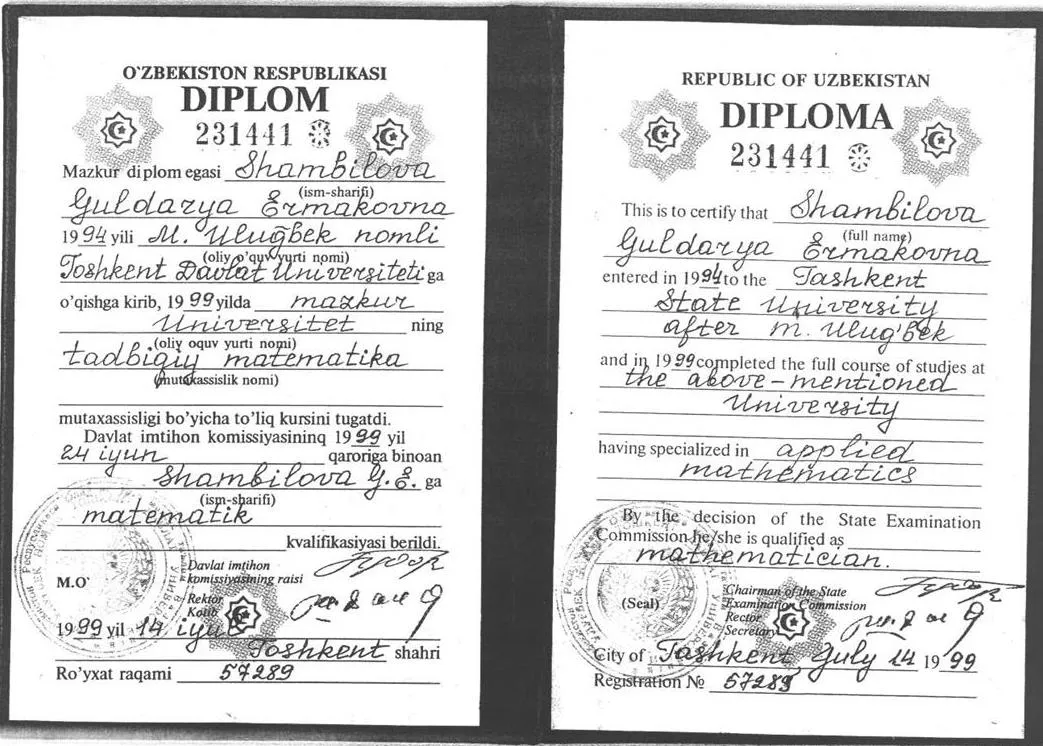 O`ZBEKISTON RESPUBLIKASI
DIPLOM
231441
Mazkur diplom egasi Shambilova
(ism-sharifi)
Guldarya Ermakovna
1994 yili M. Ulugbek nomli
(oliy o'quv yurti nomi)
Toshkent Davlat Universitetiga
o'qishga kirib, 1999 yilda mazkur
Universitet ning
(oliy oquv yurti nomi)
tadbiqiy matematika
(mutaxassislik nomi)
mutaxassisligi bo'yicha to'liq kursini tugatdi.
Davlat imtihon komissiyasininq 1999 yil
24 iyun qaroriga binoan
Shambilova G. E. ga
(ism-sharifi)
matematik
kvalifikasiyasi berildi.
Davlat imtihon
komissiyasining raisi
M.O`
Rektor
Kotib
1999 yil 14 iyul
Toshkent shahri
Ro'yxat raqami 57289
REPUBLIC OF UZBEKISTAN
DIPLOMA
231441
This is to certify that Shambilova
(full name)
Guldarya Ermakovna
entered in 1994 to the Tashkent
State University
after m. Ulug'bek
and in 1999 completed the full course of studies at
the above-mentioned
University
having specialized in applied
mathematics
By the decision of the State Examination
Commission he/she is qualified as
mathematician.
Chairman of the State
Examination Commission
(Seal)
Rector
Secretary
City of Tashkent, July 14 1999
Registration № 57289